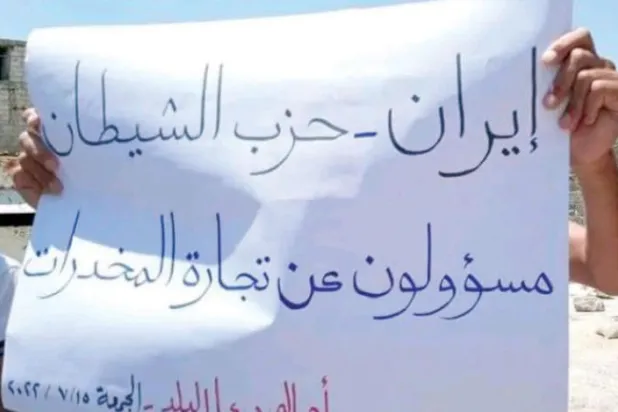 إيران - حزب الشيطان
مسؤولون عن تجارة المخدرات
البلد - الجمعة ٢٠٢٢ / ٧ / ١٥